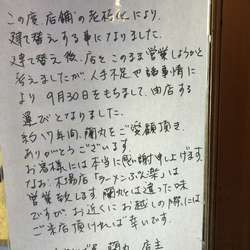 この度 店舗の老朽化により、
建て替えする事になりました。
建て替え後、店をこのまま営業しようかと
考えましたが、人手不足や諸事情に
より 9月30日をもちまして、閉店する
運びとなりました。
約17年間、蘭丸をご愛顧頂き、
ありがとうございます。
お客様には本当に感謝申し上げます。
なお、木場店「ラーメン 楽」は
営業致します。蘭丸とは違った味
ですが、お近くにお越しの際には
ご来店頂ければ幸いです。
蘭丸 店主